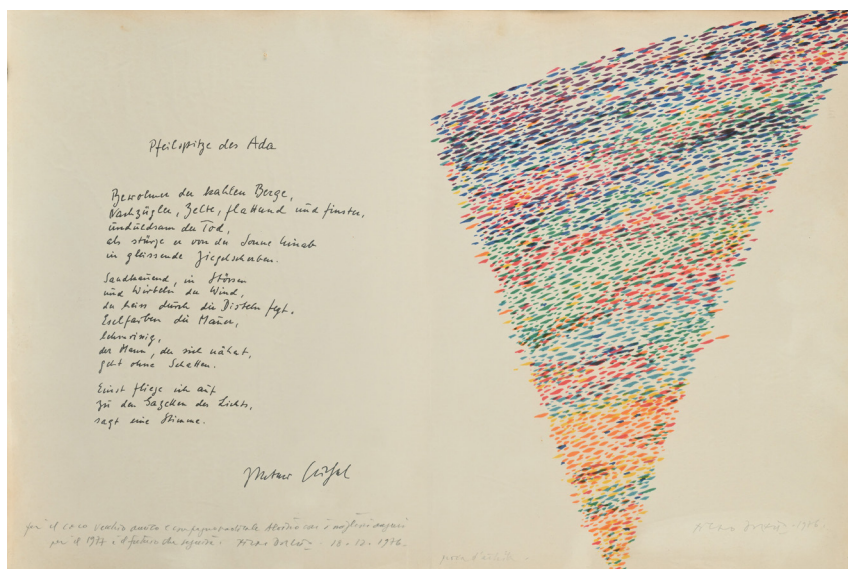 Pfeilspitze des Ada
Bewohner der kahlen Berge,
Nachzügler, Zelte, flatternd und finster,
unduldsam der Tod,
als stürze er von der Sonne hinab
in gleissende Ziegelscherben.
Sandkauend, in Stössen
und Wirbeln der Wind,
der heiss durch die Disteln fegt.
Eselfarben die Mauer,
lehmrissig,
der Mann, der sich nähert,
geht ohne Schatten.
Einst fliege ich auf
zu den Gazellen des Lichts,
sagt eine Stimme.
per il caro vecchio amico e compagno con i migliori auguri
per il 1977 e il futuro che seguirà. Piero Dorazio. 18-12-1976.
prova d'artista
Piero Dorazio - 1976.